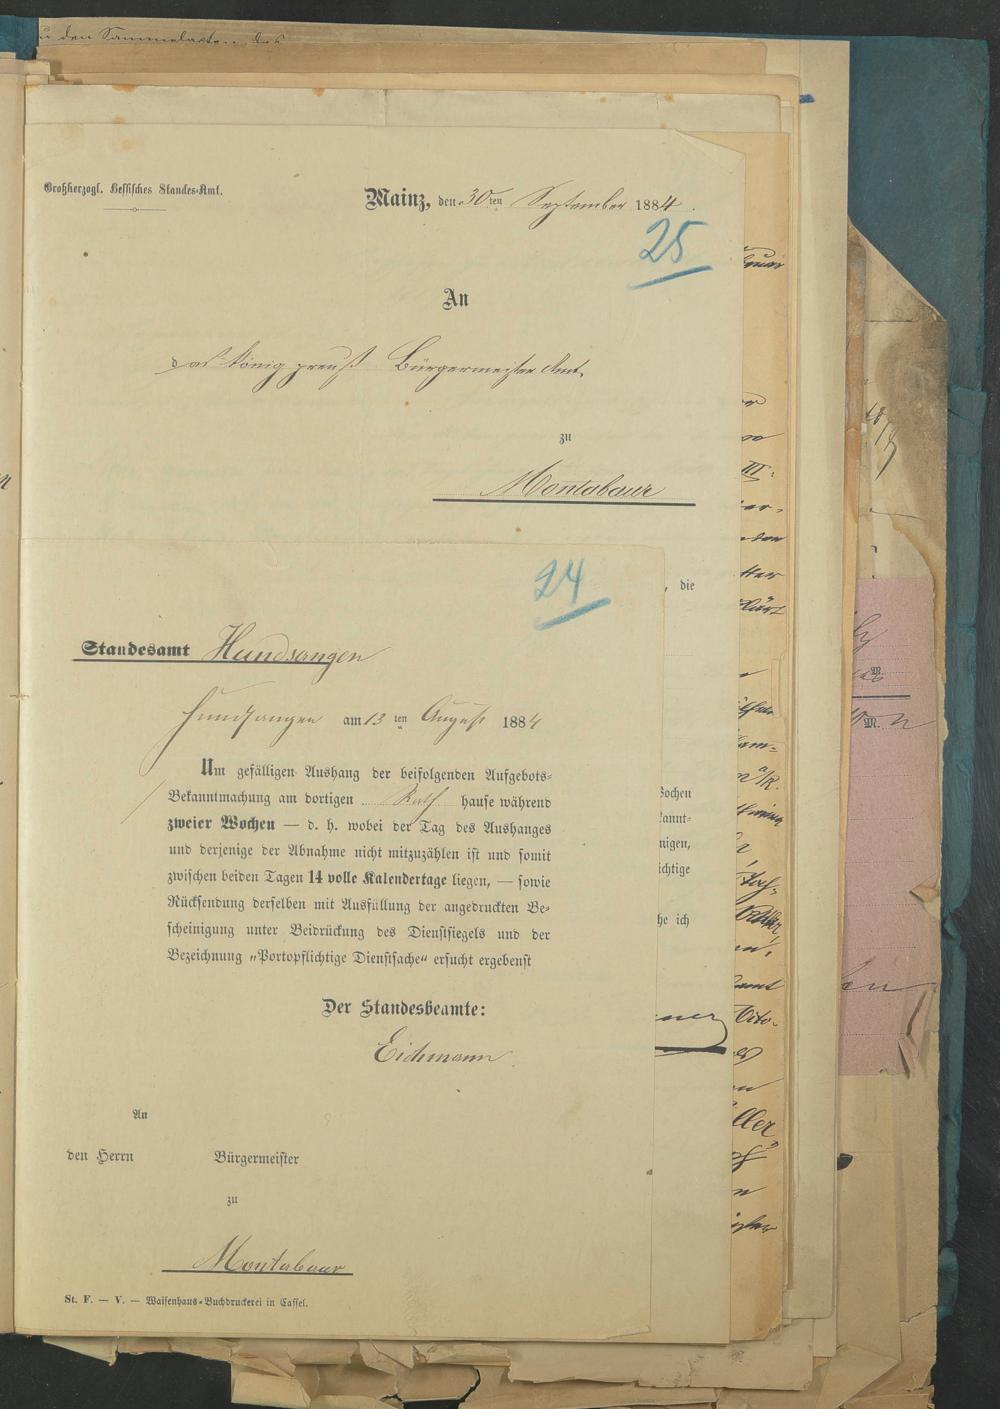 u den Sammelakten des
Großherzogl. Hessisches Standes-Amt.
Mainz, den 30ten September 1884.
25
An
das König preuß Bürgermeister Amt
zu
Montabaur
, die
Wochen
kannt-
nigen,
ichtige
he ich
24
Standesamt Hundsangen
Hundsangen am 13ten August 1884
Um gefälligen Aushang der beifolgenden Aufgebots-
Bekanntmachung am dortigen Rath hause während
zweier Wochen — d. h. wobei der Tag des Aushanges
und derjenige der Abnahme nicht mitzuzählen ist und somit
zwischen beiden Tagen 14 volle Kalendertage liegen, — sowie
Rücksendung derselben mit Ausfüllung der angedruckten Be-
scheinigung unter Beidrückung des Dienstsiegels und der
Bezeichnung „Portopflichtige Dienstsache“ ersucht ergebenst
Der Standesbeamte:
Eichmann
An
den Herrn Bürgermeister
zu
Montabaur
St. F. — V. — Waisenhaus-Buchdruckerei in Cassel.